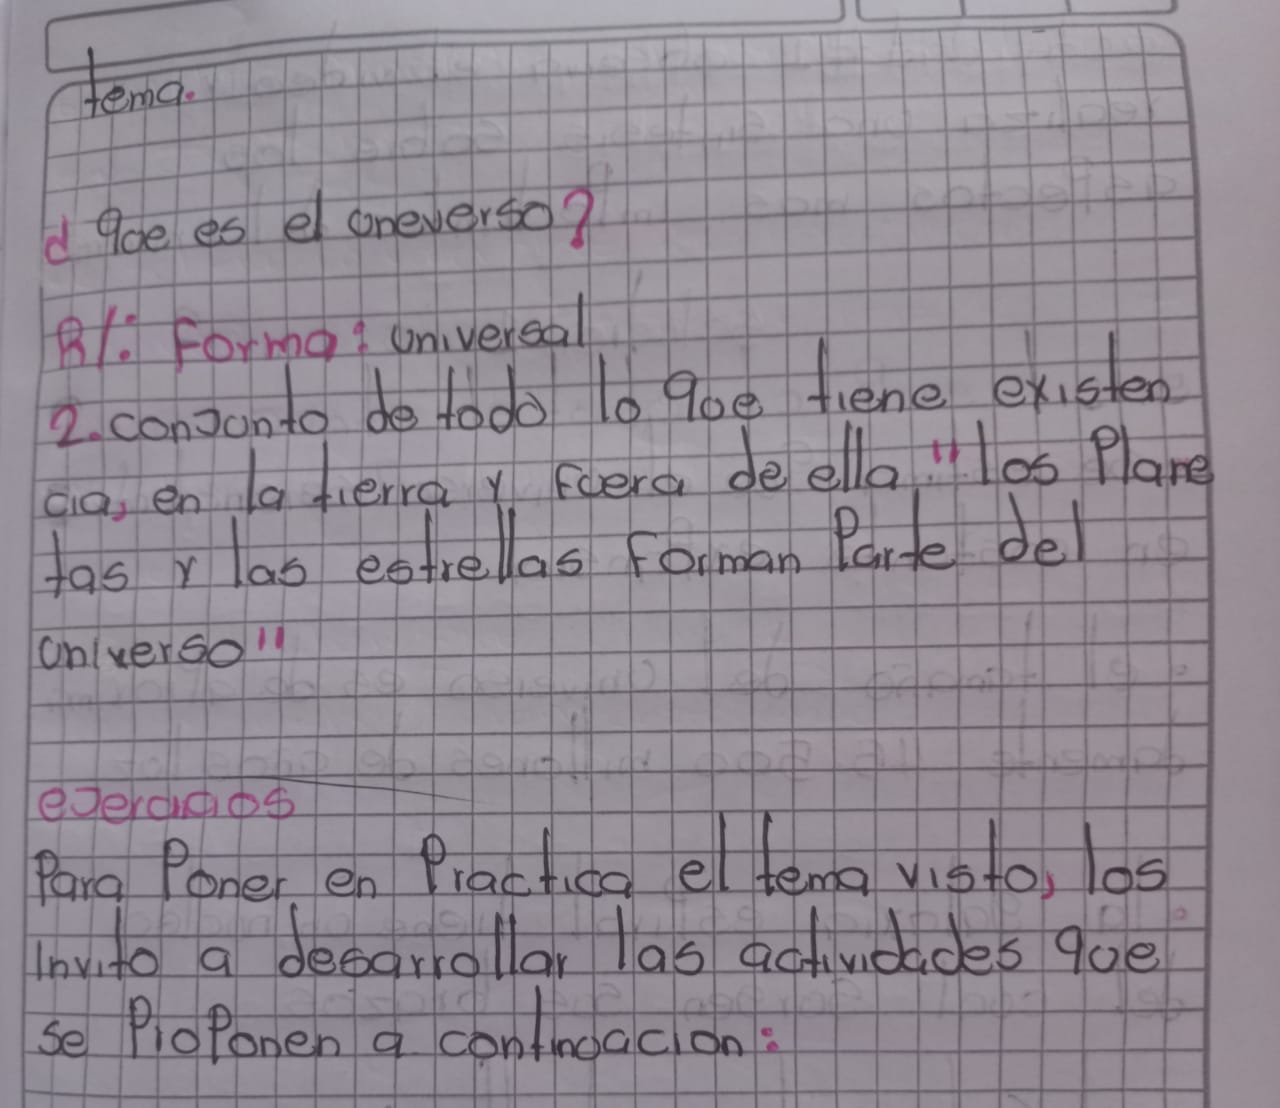 tema.
¿ que es el oneverso?
R/: Forma: universal
2. conjunto de todo lo que tiene existen
cia, en la tierra y fuera de ella "los Plane
tas y las estrellas Forman Parte del
universo"
ejercicios
Para Poner en Practica el tema visto, los
invito a desarrollar las actividades que
se ProPonen a continuacion: